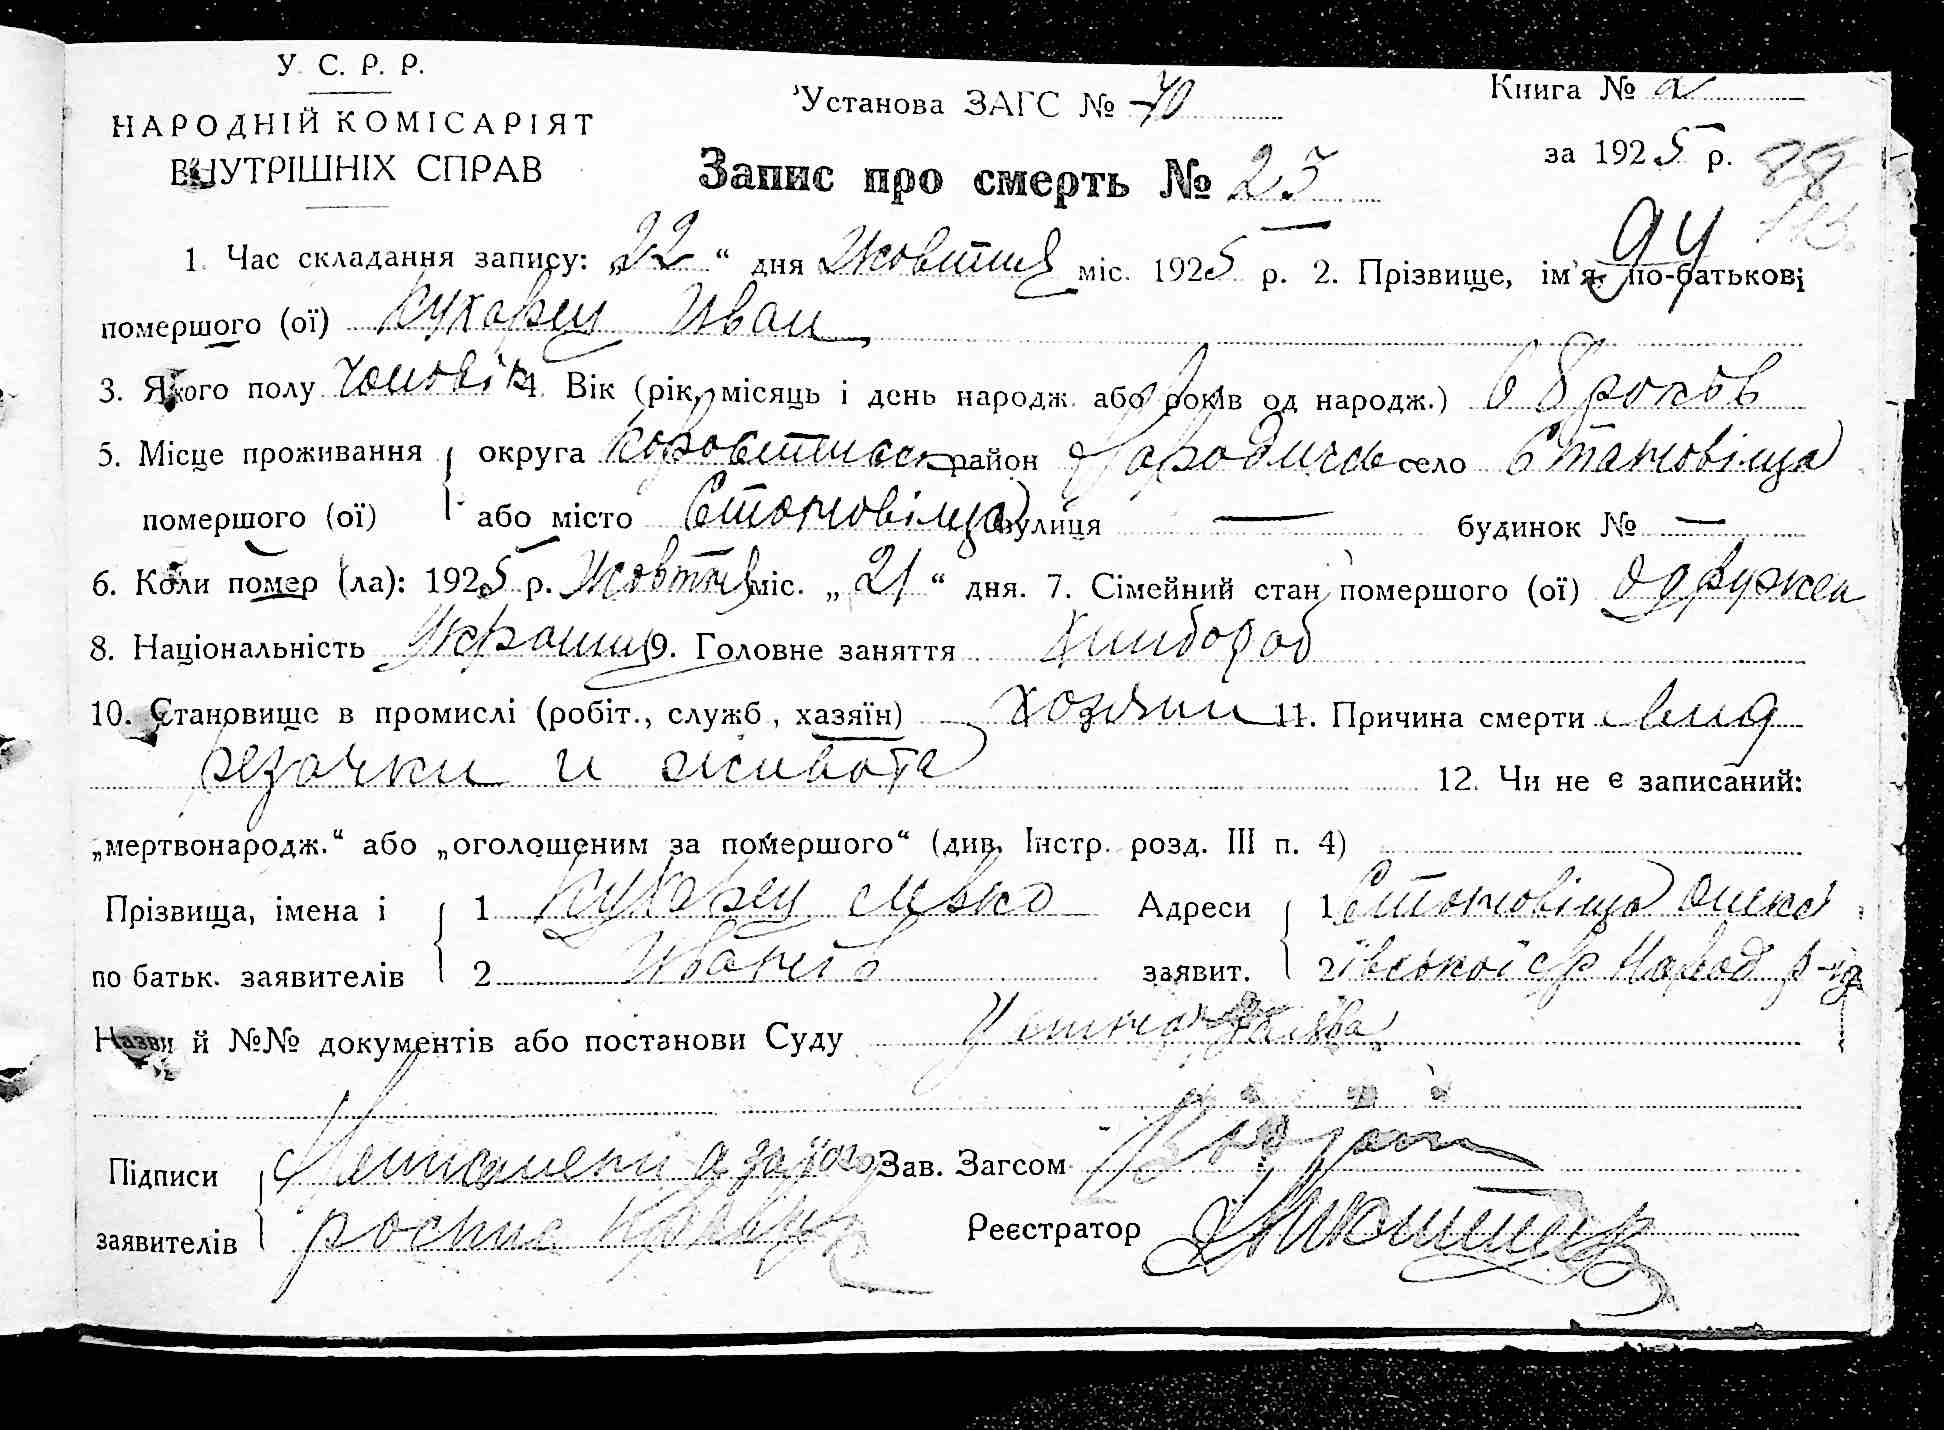 У. С. Р. Р.
НАРОДНІЙ КОМІСАРІЯТ
ВНУТРІШНІХ СПРАВ
Установа ЗАГС № 70
Книга № а
за 1925 р.
Запис про смерть № 23
88
94
1. Час складання запису: „22“ дня Жовтня міс. 1925 р. 2. Прізвище, ім'я, по-батькові
помершого (ої) Кухарец Иван
3. Якого полу Чоловік 4. Вік (рік, місяць і день народж. або років од народж.) 68 роков
5. Місце проживання округа Коростенськ район Народичсь село Становіща
помершого (ої) або місто Становіща вулиця — будинок № —
6. Коли помер (ла): 1925 р. Жовтня міс. „21“ дня. 7. Сімейний стан помершого (ої) Одружен
8. Національність Украинц 9. Головне заняття Хлибороб
10. Становище в промислі (робіт., служб., хазяїн) Хозяин 11. Причина смерти вид
резачки и живота 12. Чи не є записаний:
„мертвонародж.“ або „оголошеним за помершого“ (див. Інстр. розд. III п. 4)
Прізвища, імена і 1 Кухарец Левко Адреси 1 Становіща Олекс
по батьк. заявителів 2 Иванов заявит. 2 ївської с/р Народ р-на
Назви й №№ документів або постанови Суду Устна заява
Підписи Неписмени а за його Зав. Загсом
заявителів роспис Реєстратор